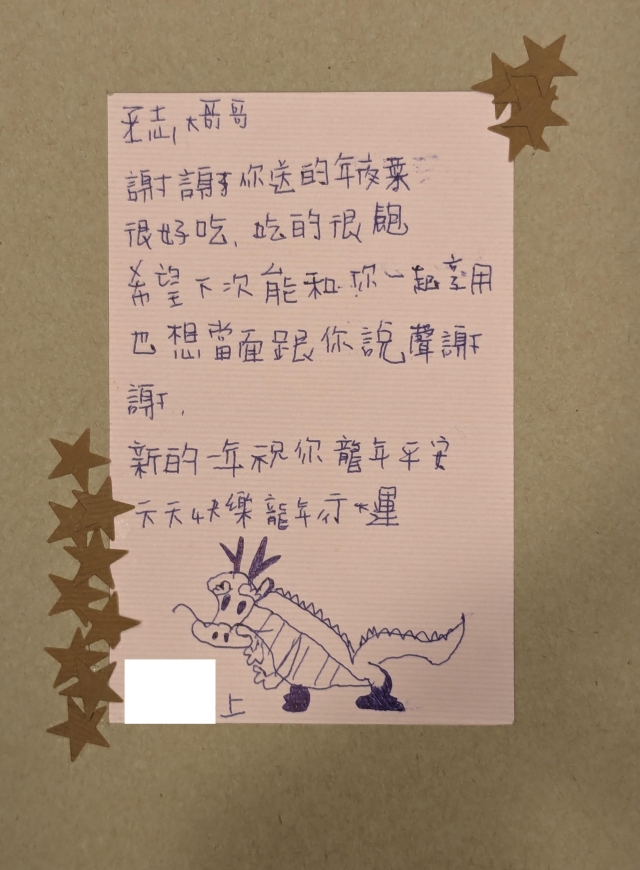 志大哥哥
謝謝你送的年夜菜
很好吃,吃的很飽
希望下次能和你一起享用
也想當面跟你說聲謝
謝,
新的一年祝你龍年平安
天天快樂龍年行大運
上